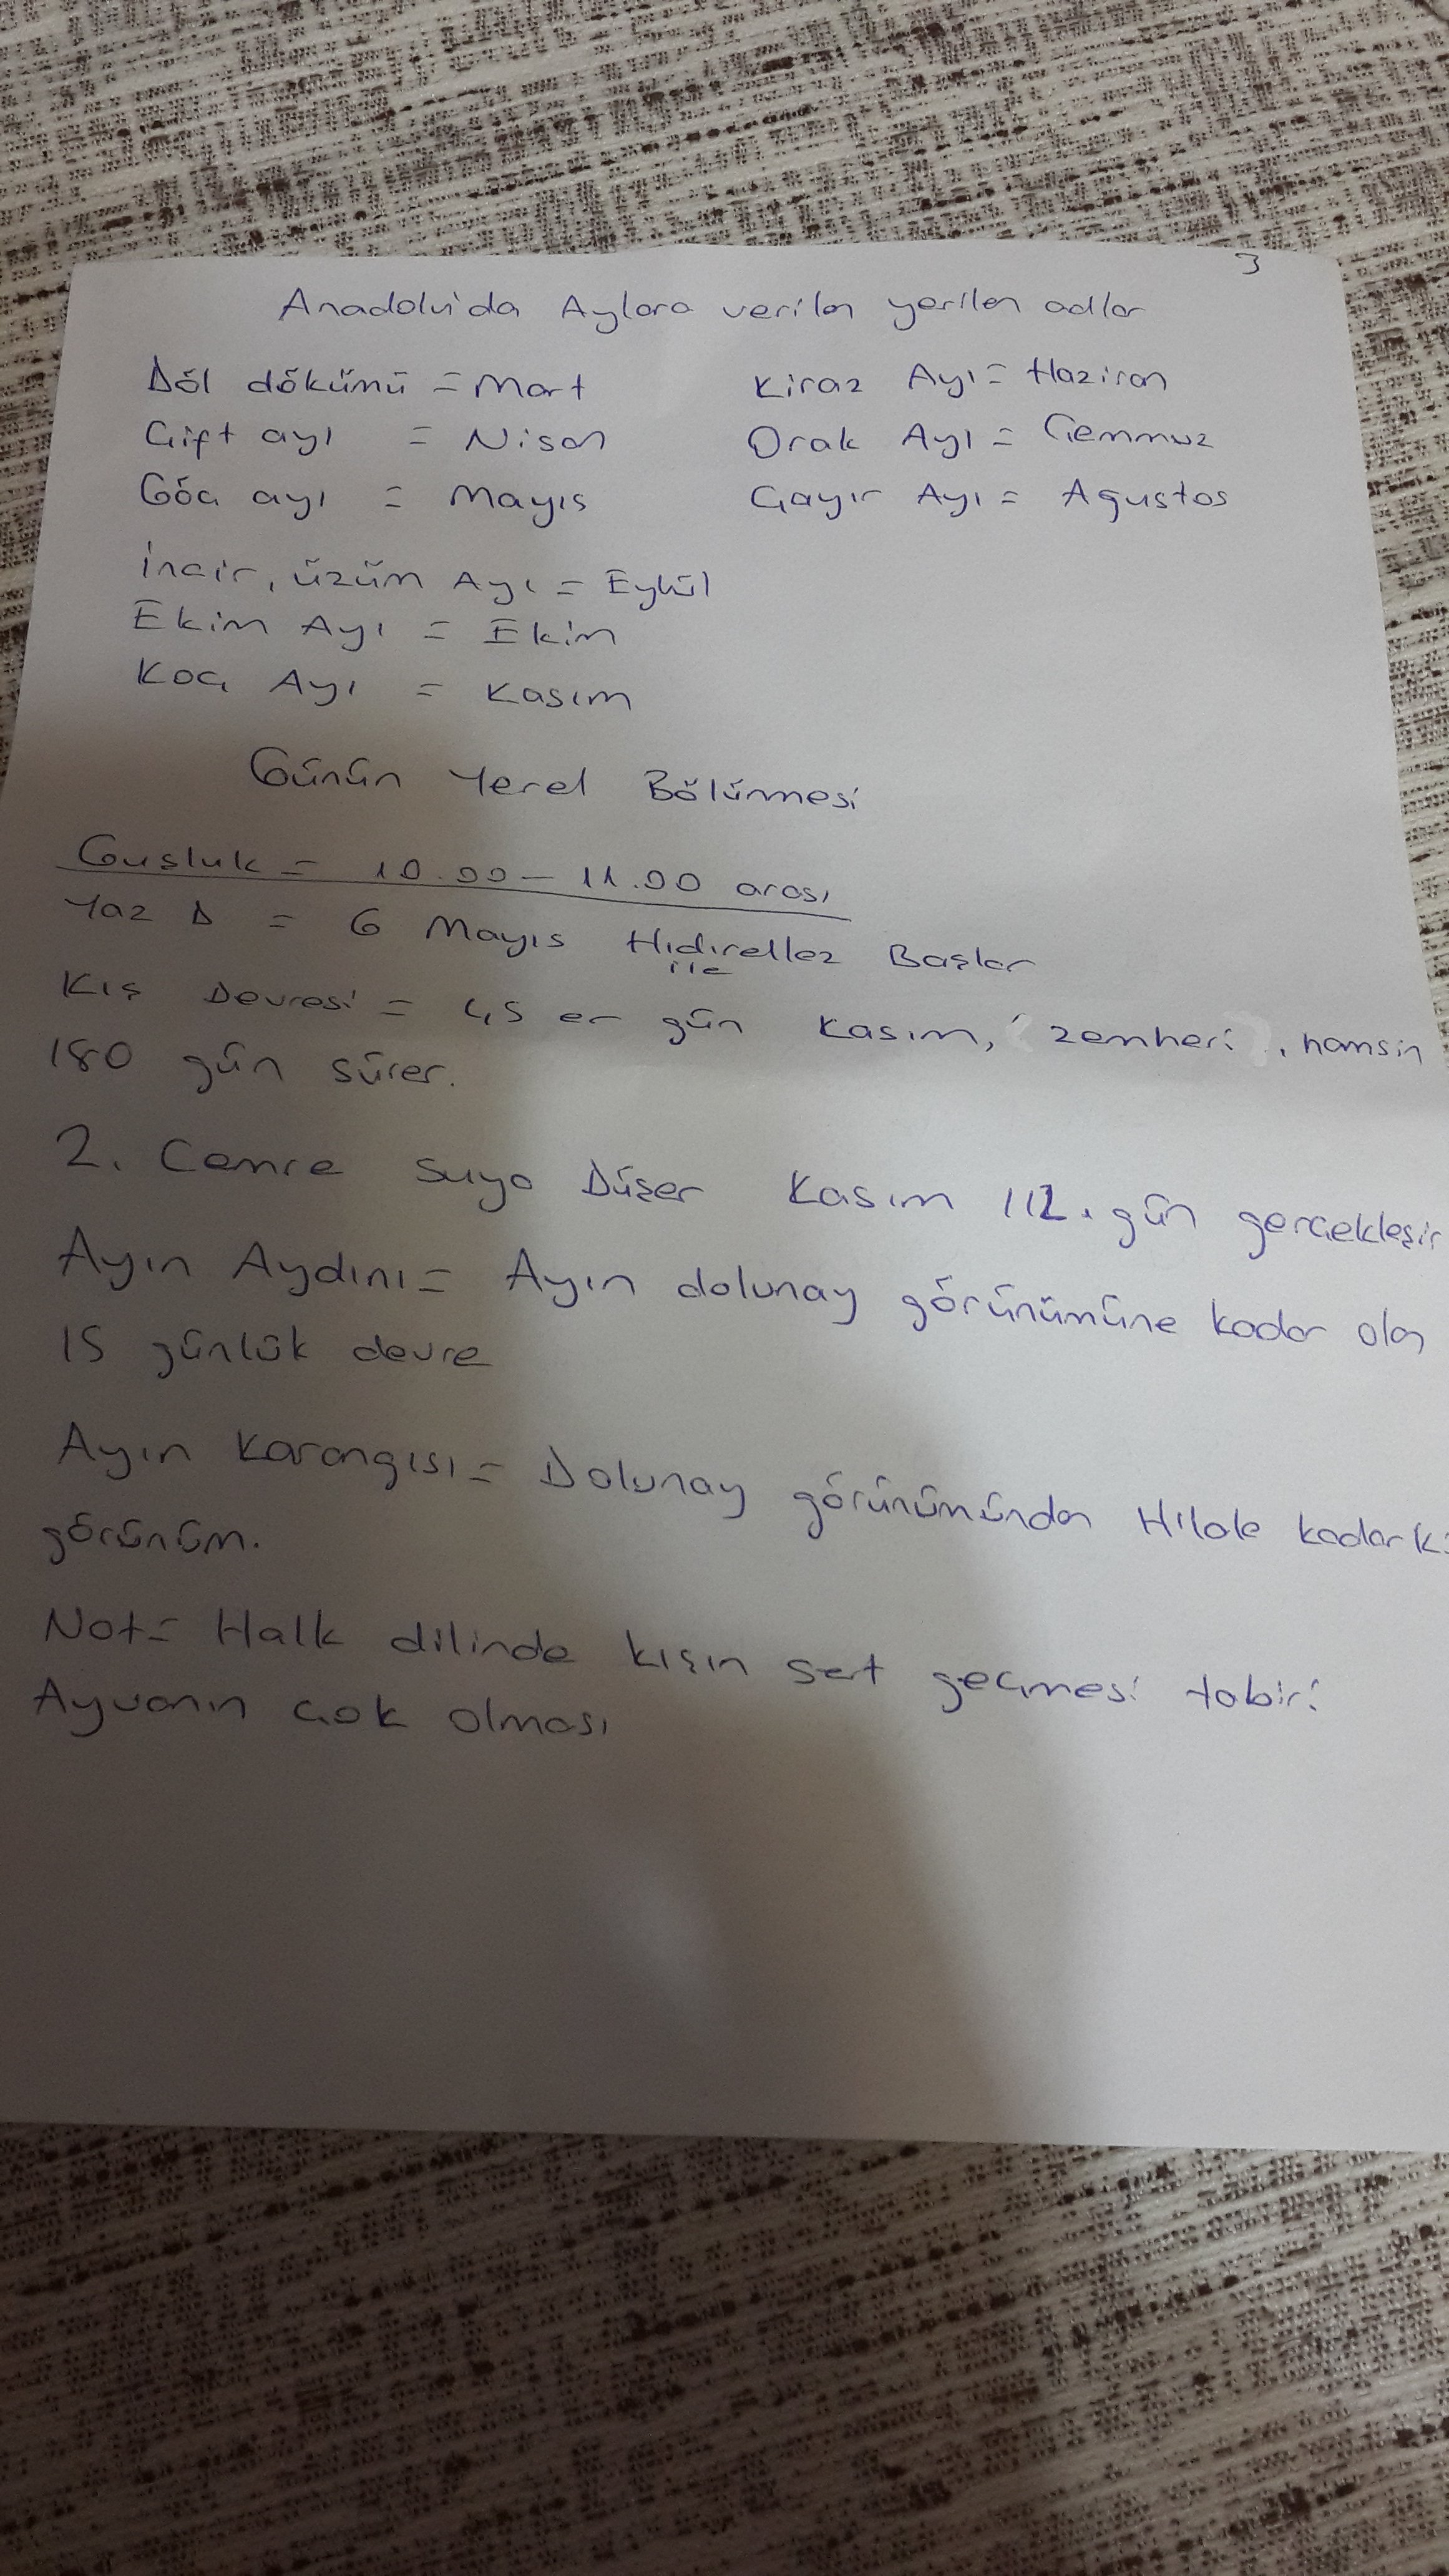 3
Anadolu'da Aylara verilen yerilen adlar
Döl dökümü = Mart
Çift ayı = Nisan
Göç ayı = Mayıs
Kiraz Ayı = Haziran
Orak Ayı = Temmuz
Çayır Ayı = Agustos
İncir, üzüm Ayı = Eylül
Ekim Ayı = Ekim
Koç Ayı = Kasım
Günün Yerel Bölünmesi
Guşluk = 10.00 - 11.00 arası
Yaz D = 6 Mayıs Hıdırellez Başlar
ile
Kış Devresi = 45 er gün Kasım, (zemheri), hamsin
180 gün sürer.
2. Cemre suya Düşer Kasım 112. gün gerçekleşir
Ayın Aydını = Ayın dolunay görünümüne kadar olan
15 günlük devre
Ayın Karangısı = Dolunay görünümünden Hilale kadarki
görünüm.
Not = Halk dilinde kışın sert geçmesi tabiri
Ayvanın çok olması